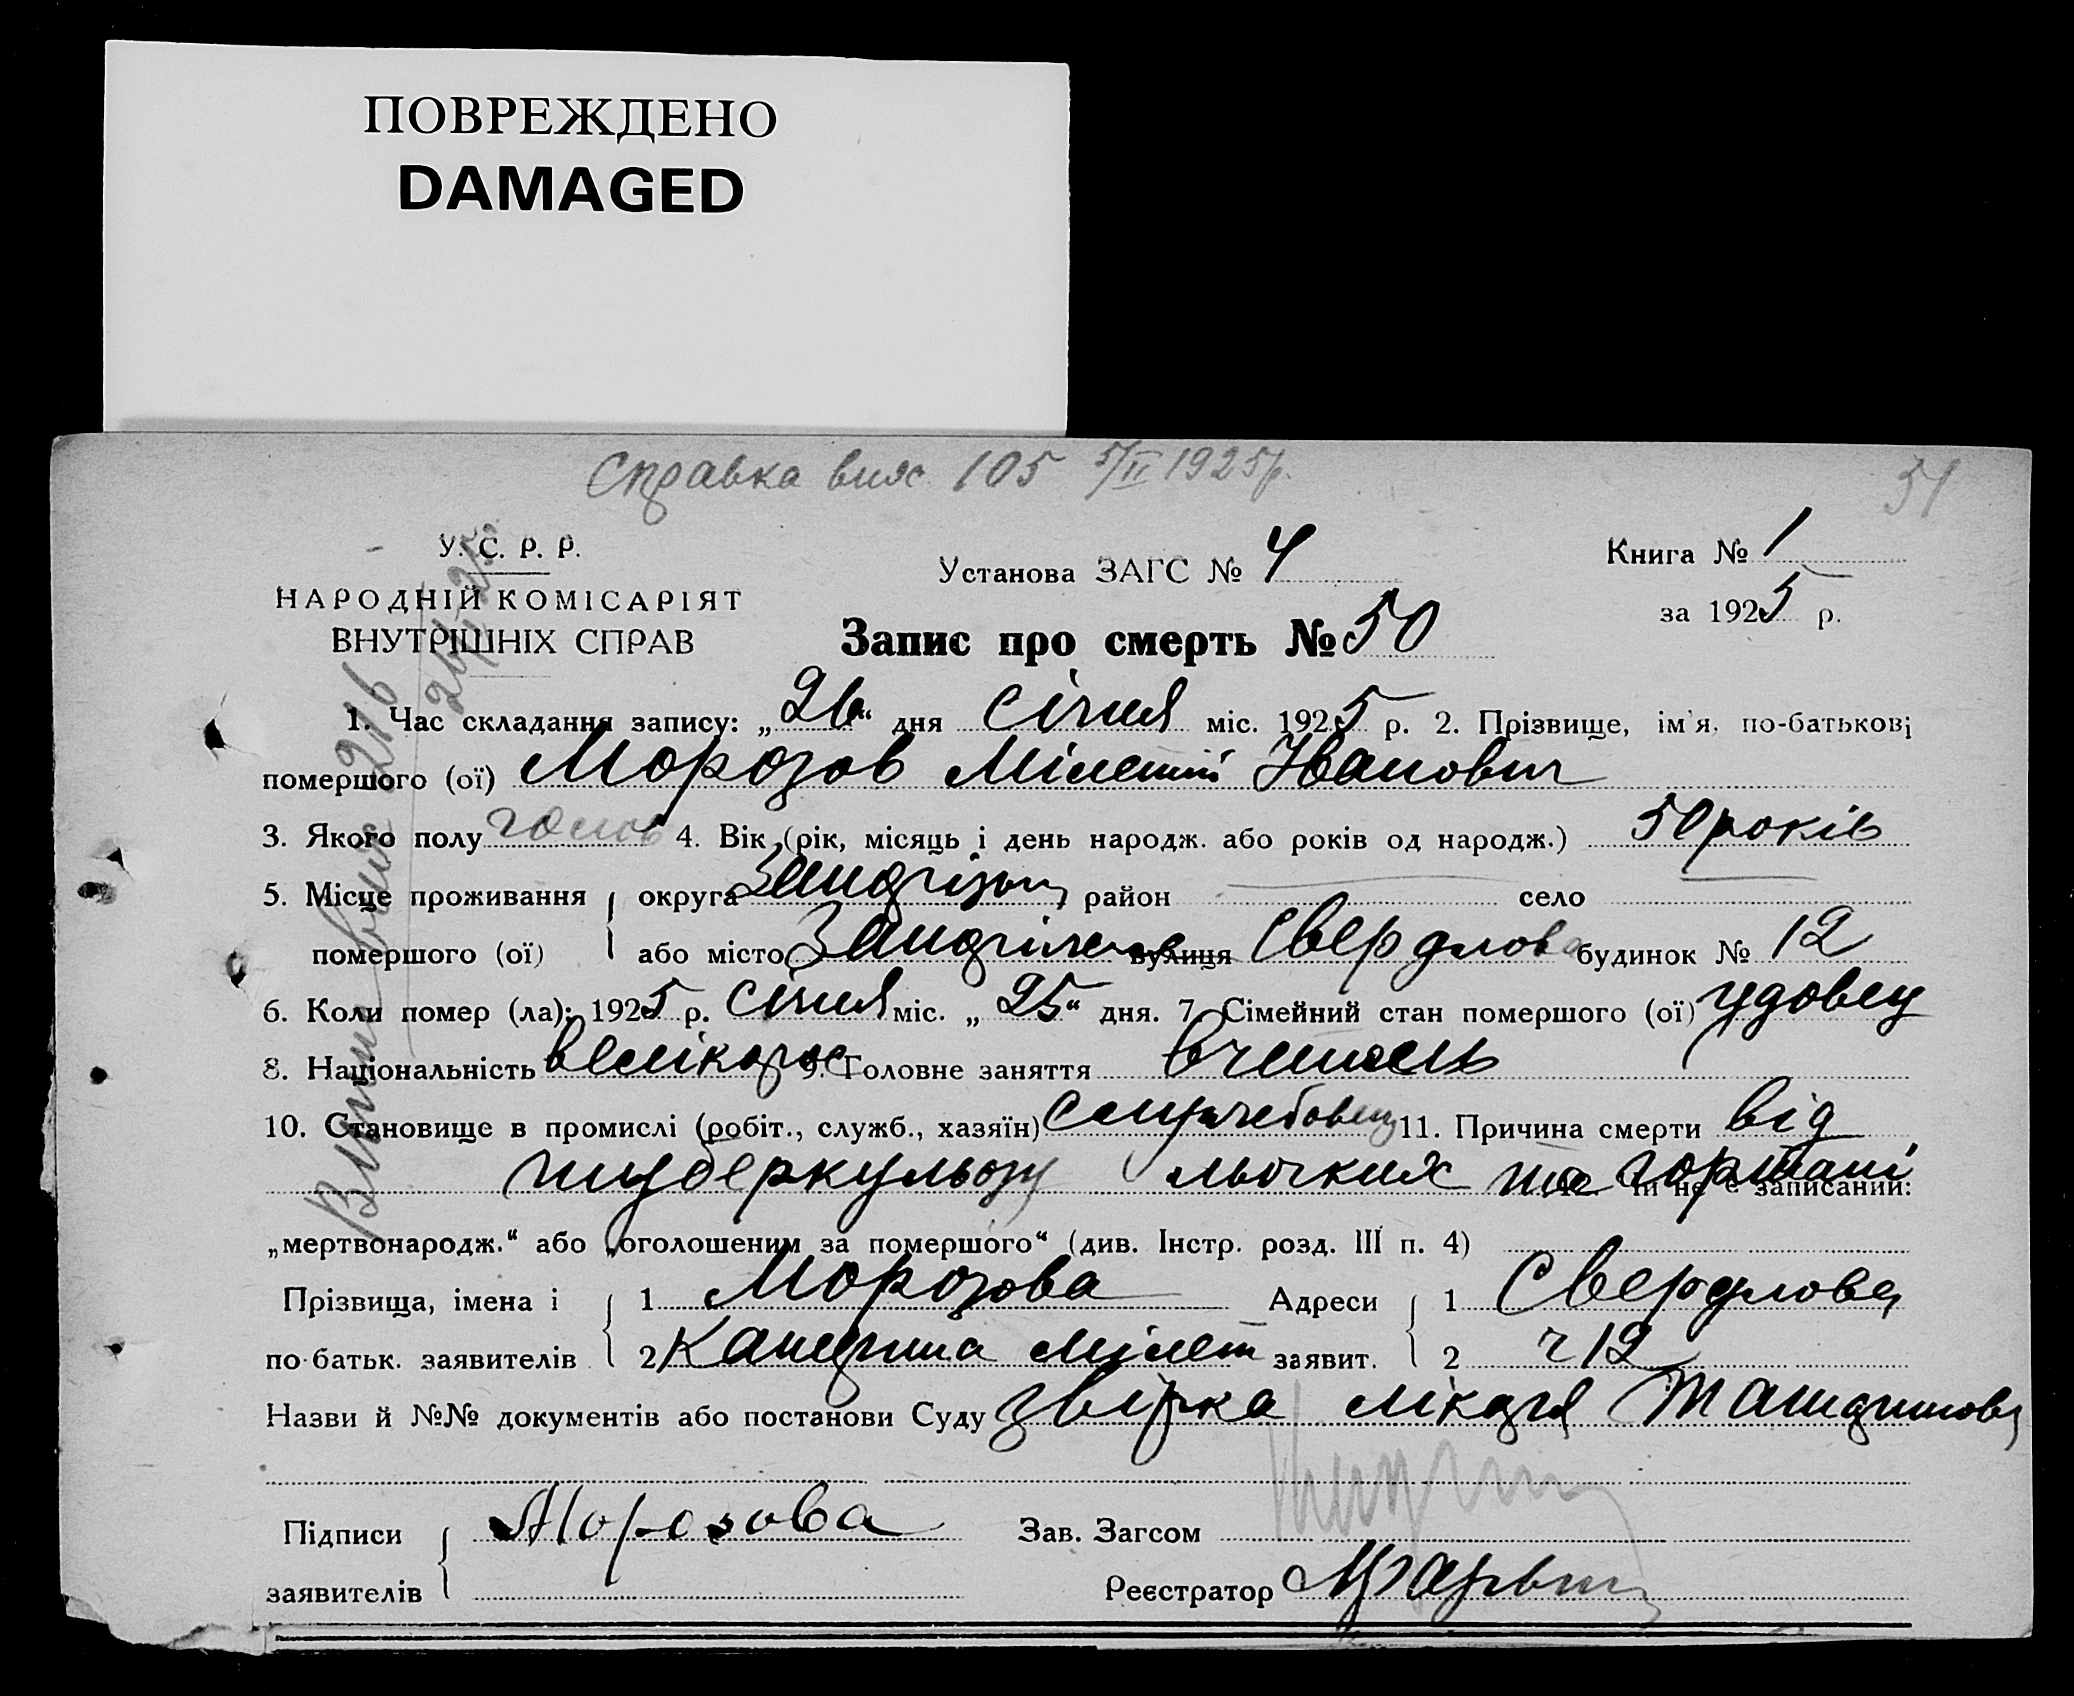 ПОВРЕЖДЕНО
DAMAGED
Справка 105 5/II 1925р.
51
У. С. Р. Р.
НАРОДНІЙ КОМІСАРІЯТ
ВНУТРІШНІХ СПРАВ
Установа ЗАГС № 4
Книга № 1
за 1925 р.
Запис про смерть № 50
1. Час складання запису: „26“ дня січня міс. 1925 р. 2. Прізвище, ім'я, по-батькові
помершого (ої) Морозов Мілетій Іванович
3. Якого полу 4. Вік (рік, місяць і день народж. або років од народж.) 50 років
5. Місце проживання округа район село
помершого (ої) або місто вулиця Свердлова будинок № 12
6. Коли помер (ла): 1925 р. січня міс. „25“ дня. 7. Сімейний стан помершого (ої) удовец
8. Національність велікорос 9. Головне заняття вчитель
10. Становище в промислі (робіт., служб., хазяїн) 11. Причина смерти від
туберкульозу та гортані Чи не є записаний:
„мертвонародж.“ або „оголошеним за помершого“ (див. Інстр. розд. III п. 4)
Прізвища, імена і 1 Морозова Адреси 1 Свердлова
по-батьк. заявителів 2 Мілет заявит. 2 ч 12
Назви й №№ документів або постанови Суду лікаря
Підписи Морозова Зав. Загсом
заявителів Реєстратор
216